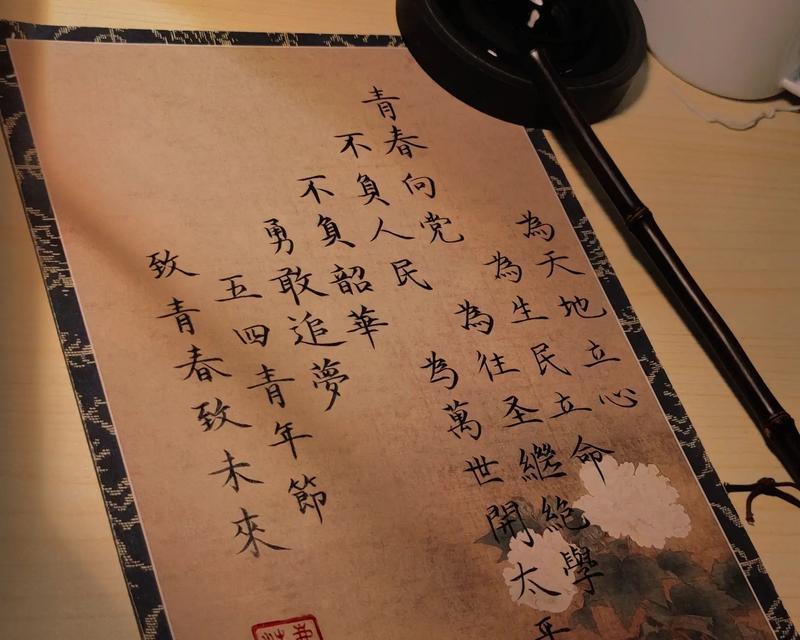 為天地立心
為生民立命
為往圣繼絕學
為萬世開太平
青春向党
不負人民
不負韶華
勇敢追夢
五四青年節
致青春致未來